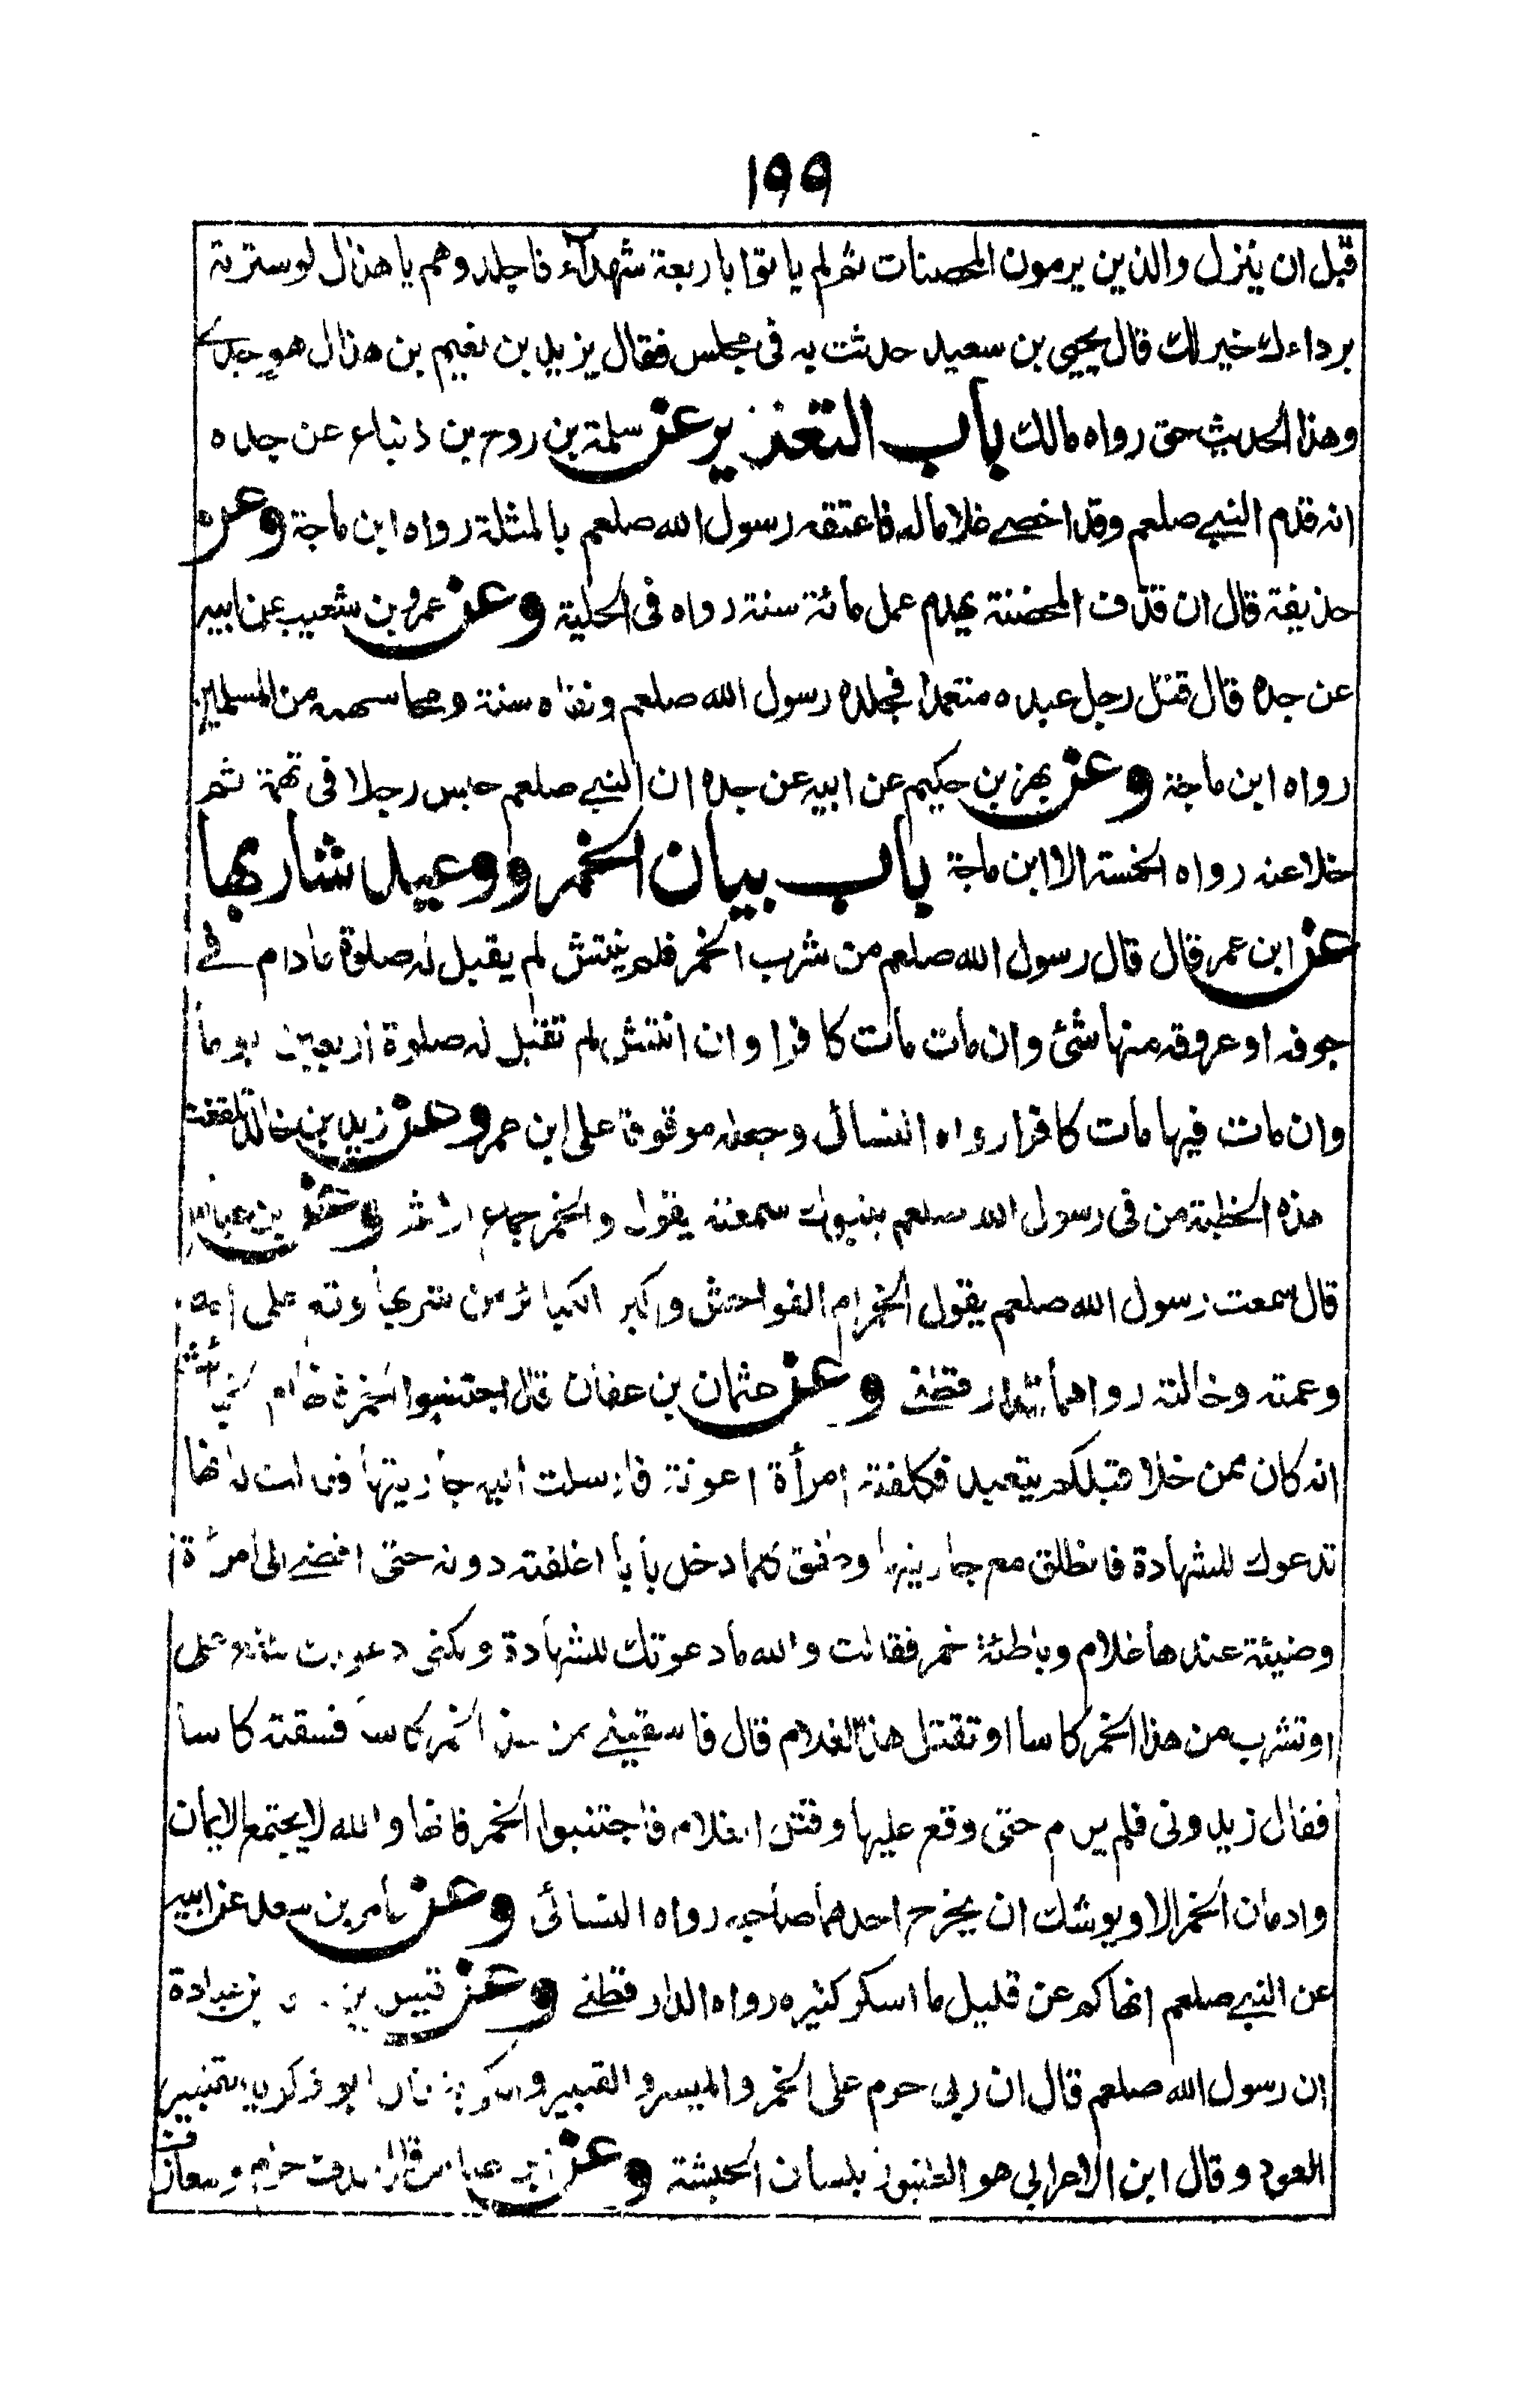 ١٩٩
قبل ان ينزل والذين يرمون المحصنات ثم لم ياتوا باربعة شهدآء فاجلدوهم يا هذال لوسترته
برداءك خيرلك قال يحيى بن سعيد حدثت به فى مجلس فقال يزيد بن نعيم بن هذال هو جدى
وهذا الحديث حق رواه مالك باب التعزير عن سلمة بن روح بن ذنباع عن جده
انه قدم النبى صلعم وقد اخصى غلاما له فاعتقه رسول الله صلعم بالمثلة رواه ابن ماجة وعن
حذيفة قال ان قذف المحصنة يهدم عمل مائة سنة رواه فى الحلية وعن عمرو بن شعيب عن ابيه
عن جده قال قتل رجل عبده متعمدا فجلده رسول الله صلعم ونفاه سنة ومحا سهمه من المسلمين
رواه ابن ماجة وعن بهز بن حكيم عن ابيه عن جده ان النبى صلعم حبس رجلا فى تهمة ثم
خلا عنه رواه الخمسة الا ابن ماجة باب بيان الخمر ووعيد شاربها
عن ابن عمر قال قال رسول الله صلعم من شرب الخمر فلم ينتش لم يقبل له صلوة مادام فى
جوفه او عروقه منها شئ وان مات مات كافرا وان انتش لم تقبل له صلوة اربعين يوما
وان مات فيها مات كافرا رواه النسائى وجعله موقوفا على ابن عمر وعن زيد بن خالد تلقفت
هذه الخطبة من فى رسول الله صلعم بتبوك سمعته يقول والخمر جماع الاثم وعن بن عباس
قال سمعت رسول الله صلعم يقول الخمر ام الفواحش واكبر الكبائر من شربها وقع على امه
وعمته وخالته رواهما الدارقطنى وعن عثمان بن عفان قال اجتنبوا الخمر فانها ام الخبائث
انه كان ممن خلا قبلكم يتعبد فكلفته امرأة اعونة فارسلت اليه جاريتها فقالت له انها
تدعوك للشهادة فانطلق مع جاريتها وطفق كلما دخل بابا اغلقته دونه حتى افضى الى امرأة
وضيئة عندها غلام وباطئة خمر فقالت والله مادعوتك للشهادة ولكنى دعوتك لتقع على
او تشرب من هذا الخمر كاسا او تقتل هذا الغلام قال فاسقينى من هذا الخمر كاسا فسقته كاسا
فقال زيدونى فلم يرم حتى وقع عليها وقتل الغلام فاجتنبوا الخمر فانها والله لا يجتمع الايمان
وادمان الخمر الا ويوشك ان يخرج احدهما صاحبه رواه النسائى وعن عامر بن سعد عن ابيه
عن النبى صلعم انهاكم عن قليل ما اسكر كثيره رواه الدارقطنى وعن قيس بن بن عبادة
ان رسول الله صلعم قال ان ربى حرم على الخمر والميسر والقبير و قال ابو زكريا القنين
العود وقال ابن الاعرابى هو الطنبور بلسان الحبشة وعن